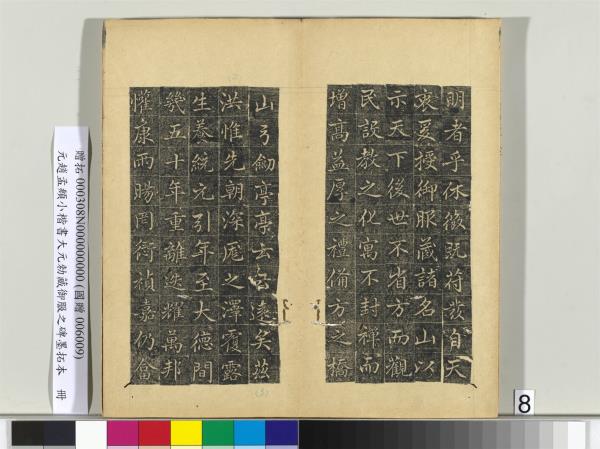 明者乎休徵既符發自天
衷爰授御服藏諸名山以
示天下後世不省方而觀
民設教之化寓不封禪而
增高益厚之禮備方之橋
山弓劒亭亭云云遠矣茲
洪惟先朝深厖之澤覆露
生養統元引年至大德間
幾五十年重離迭耀萬邦
懽康雨暘罔愆禎嘉仍
贈拓 000308N000000000 (國贈 006009)
元趙孟頫小楷書大元勅藏御服之碑墨拓本 冊
8